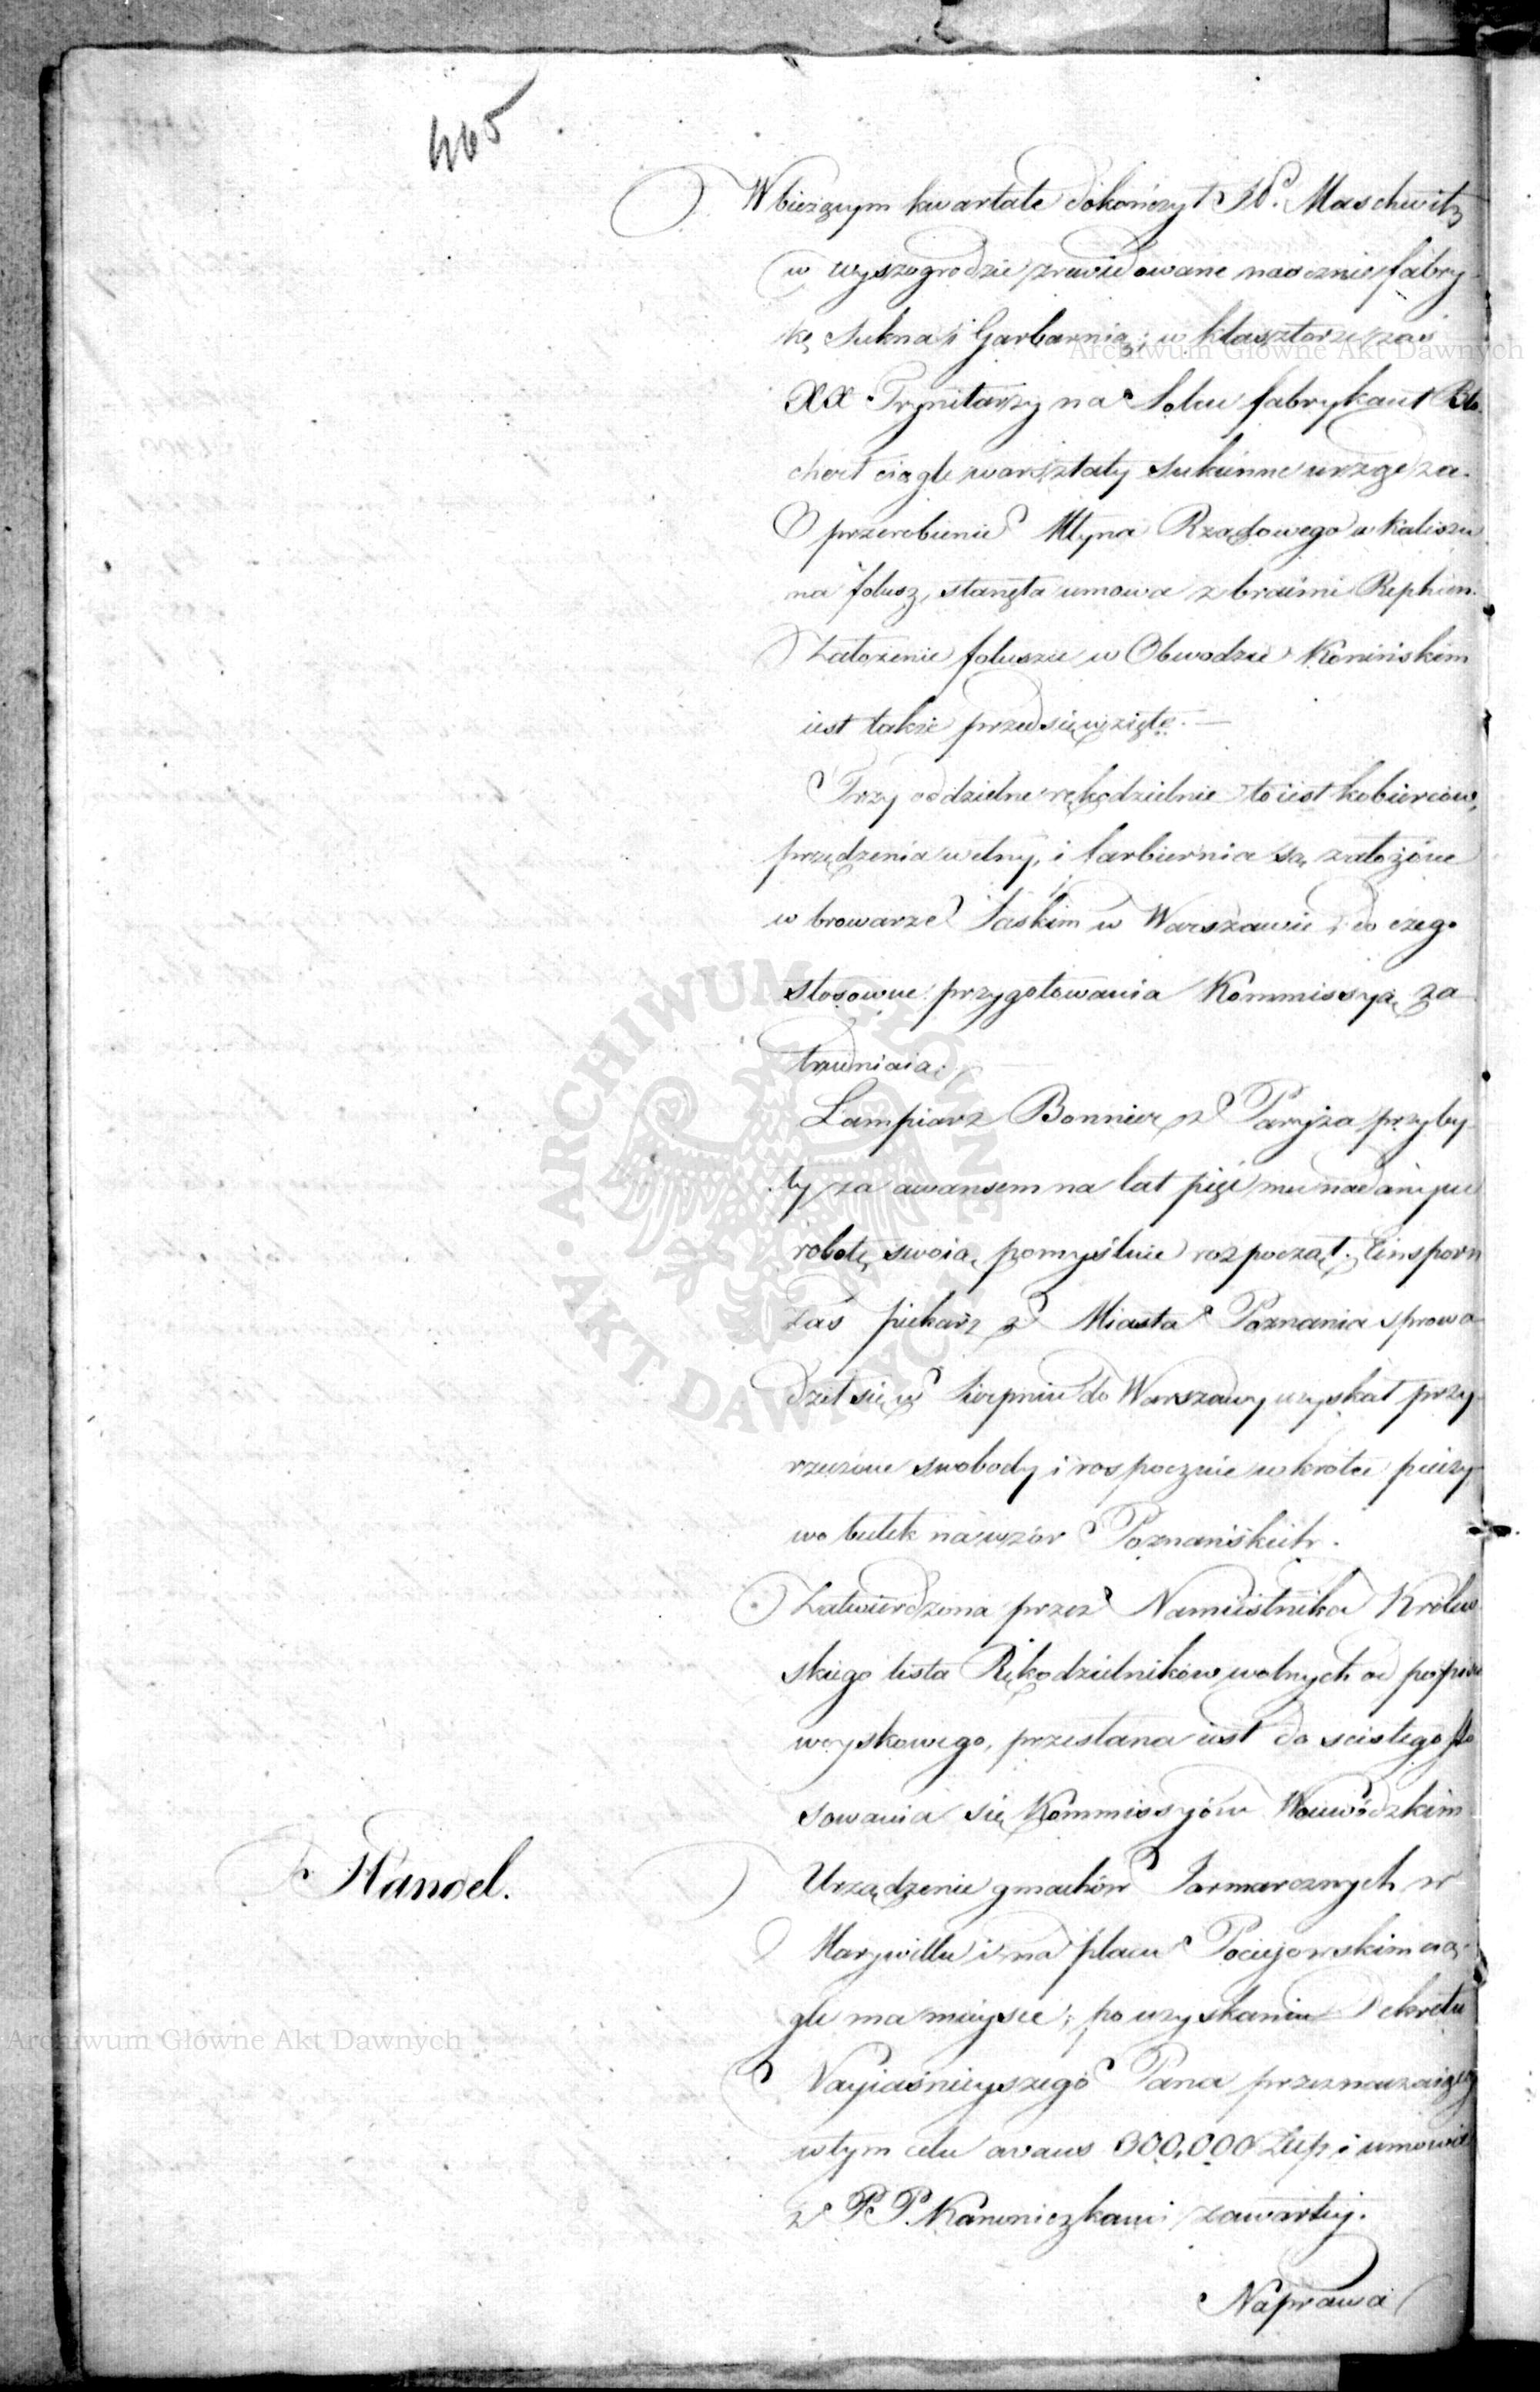 465
W bieżącym kwartale dokończył JP. Maschwitz
w wyszogrodzie zrewidowane naocznie fabry-
kę Sukna i Garbarnią; w klasztorze zaś
XX Trynitarzy na Solcu fabrykant Blo-
chert ciągle warsztaty sukienne urządza.
O przerobienie Młyna Rządowego w Kaliszu
na folusz, stanęła umowa z braćmi Rephan.
Założenie folusza w Obwodzie Konińskim
iest także przedsięwzięte.
Trzy oddzielne rękodzielnie to iest kobierców,
przędzenia wełny, i farbiernia są założone
w browarze Saskim w Warszawie, do czego
stosowne przygotowania Kommissyą za
trudniaią.
Lampiarz Bonnier z Paryża przyby-
ły za awansem na lat pięć mu nadanym
robotę swoią pomyślnie rozpoczął. Einsporn
zaś piekarz z Miasta Poznania sprowa
dził się w Sierpniu do Warszawy uzyskał przy-
rzeczone swobody i rospocznie wkrótce pieczy-
wo bułek na wzór Poznańskich.
Zatwierdzona przez Namiestnika Królew
skiego lista Rękodzielników wolnych od popisu
woyskowego, przesłana iest do scisłego sto
sowania się Kommissyóm Woiewódzkim
Handel.
Urządzenie gmachów Jarmarcznych w
Marywillu i na placu Pociejowskim cią-
gle ma mieysce; po uzyskaniu Dekretu
Nayiaśnieyszego Pana przeznaczaiącego
w tym celu avans 300,000 Złłp i umowie
z PP. Kanoniczkami zawartey.
Naprawa
Archiwum Główne Akt Dawnych
Archiwum Główne Akt Dawnych
ARCHIWUM GŁÓWNE · AKT DAWNYCH ·